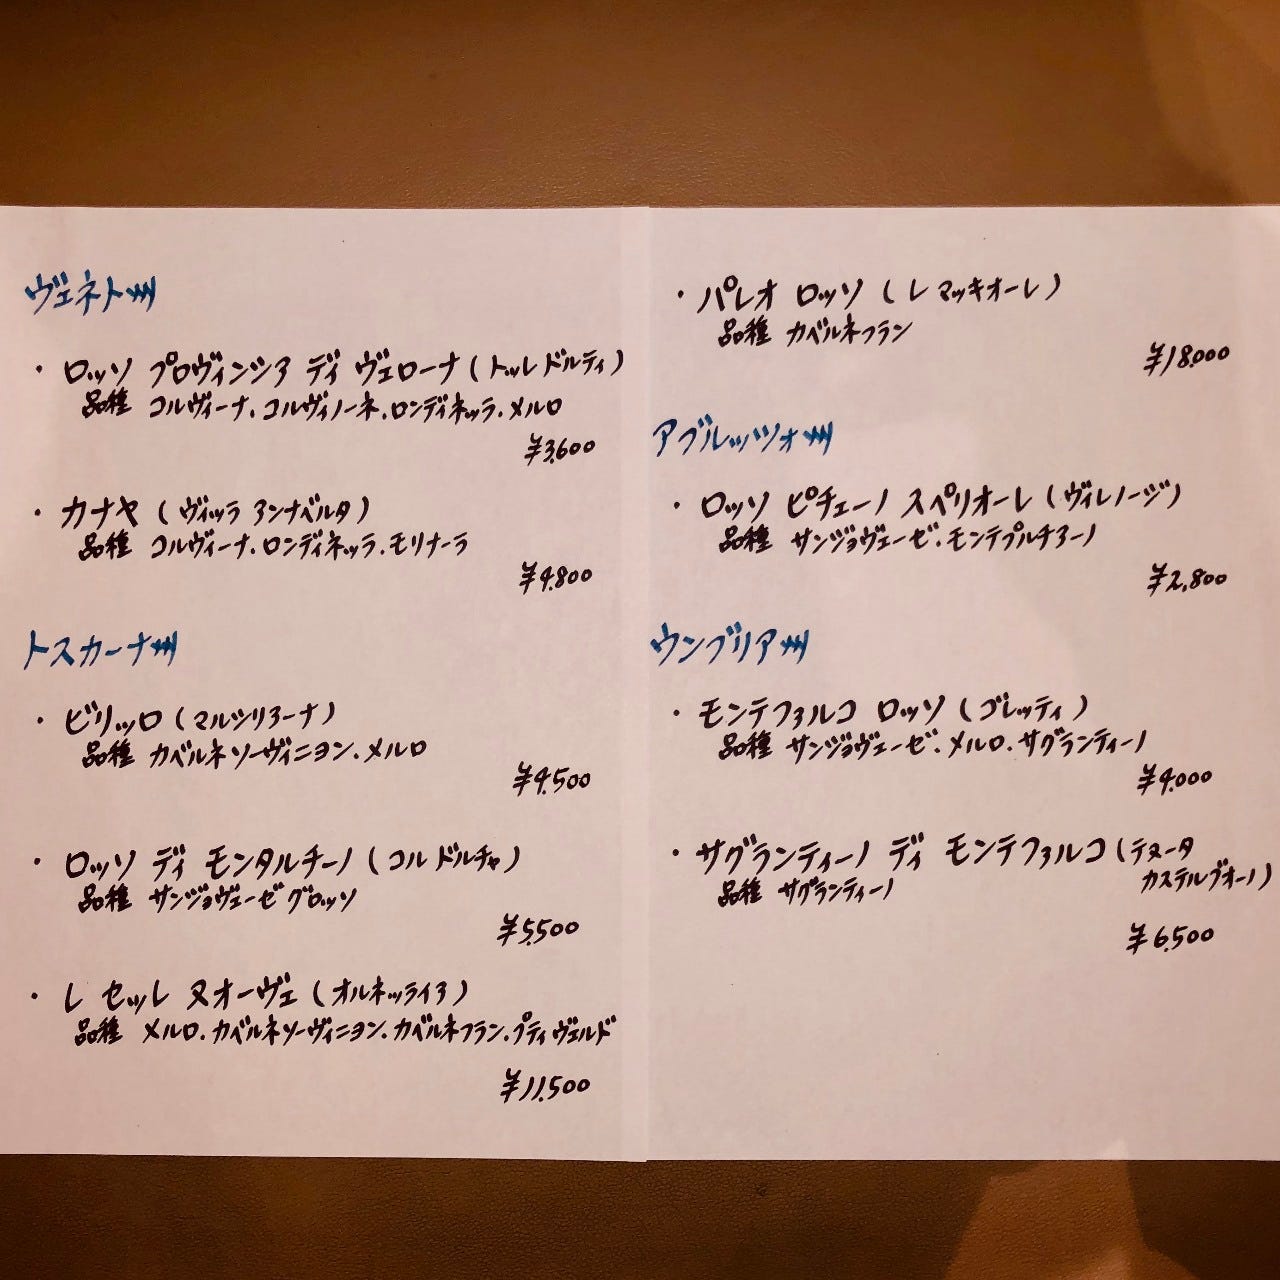 ヴェネト州
・ロッソ プロヴィンシア ディ ヴェローナ (トッレ ドルティ)
品種 コルヴィーナ.コルヴィノーネ.ロンディネッラ.メルロ
¥3,600
・カナヤ (ヴィッラ アンナベルタ)
品種 コルヴィーナ.ロンディネッラ.モリナーラ
¥4,800
トスカーナ州
・ビリッロ (マルシリアーナ)
品種 カベルネソーヴィニヨン.メルロ
¥4,500
・ロッソ ディ モンタルチーノ (コル ドルチャ)
品種 サンジョヴェーゼグロッソ
¥5,500
・レ セッレ ヌオーヴェ (オルネッライア)
品種 メルロ.カベルネソーヴィニヨン.カベルネフラン.プティヴェルド
¥11,500
・パレオ ロッソ (レ マッキオーレ)
品種 カベルネフラン
¥18,000
アブルッツォ州
・ロッソ ピチェーノ スペリオーレ (ヴィレノージ)
品種 サンジョヴェーゼ.モンテプルチアーノ
¥2,800
ウンブリア州
・モンテファルコ ロッソ (ゴレッティ)
品種 サンジョヴェーゼ.メルロ.サグランティーノ
¥4,000
・サグランティーノ ディ モンテファルコ (テヌータ
カステルブオーノ)
品種 サグランティーノ
¥6,500